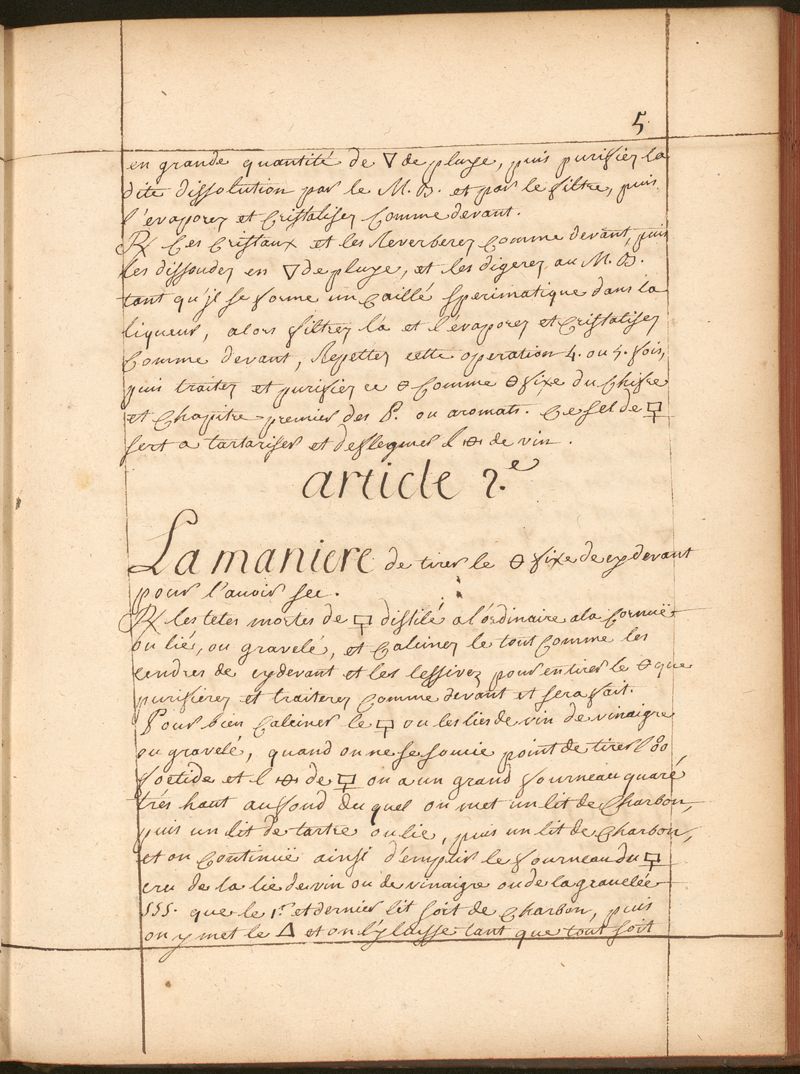 5.
en grande quantité de 🜄 de pluye, puis purifiez la
dite dissolution par le M. B. et par le filtre, puis
l'evaporez et Cristalisez Comme devant.
℞ Ces Cristaux et les Reverberez Comme devant, puis
les dissoudez en 🜄 de pluye, et les digerez au M. B.
tant qu'jl se forme un Caillé sperimatique dans la
liqueur, alors filtrez la et l'evaporez et Cristalisez
Comme devant, Repettez cette operation 4. ou 5. fois,
puis traitez et purifiez ce 🜔 Comme 🜔 fixe du Chifre
et Chapitre premier des P. ou aromats. Ce sel de 🜿
sert a tartariser et deflegmer l 🜔 de vin.
article 2.e
La maniere de tirer le 🜔 fixe de cy devant
pour l'avoir sec.
℞ les tetes mortes de 🜿 distilé a l'ordinaire a la Cornuë
ou lié, ou gravelé, et Calcinez le tout Comme les
cendres de cydevant et les lessivez pour en tirer le 🜔 que
purifierez et traiterez Comme devant et sera fait.
Pour bien Calciner le 🜿 ou les liés de vin de vinaigre
ou gravelé, quand on ne se soucie point de tirer l'
foetide et l 🜔 de 🜿 on a un grand fourneau quaré
trés haut au fond du quel on met un lit de Charbon,
puis un lit de tartre ou lie, puis un lit de Charbon,
et on Continuë ainsi d'emplir le fourneau du 🜿
cru de la lie de vin ou de vinaigre ou de la gravelée
SSS. que le 1.r et dernier lit soit de Charbon, puis
on y met le 🜂 et on l'y laisse tant que tout soit